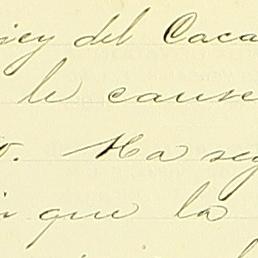 del Caca
le cause
Ha seg
que la